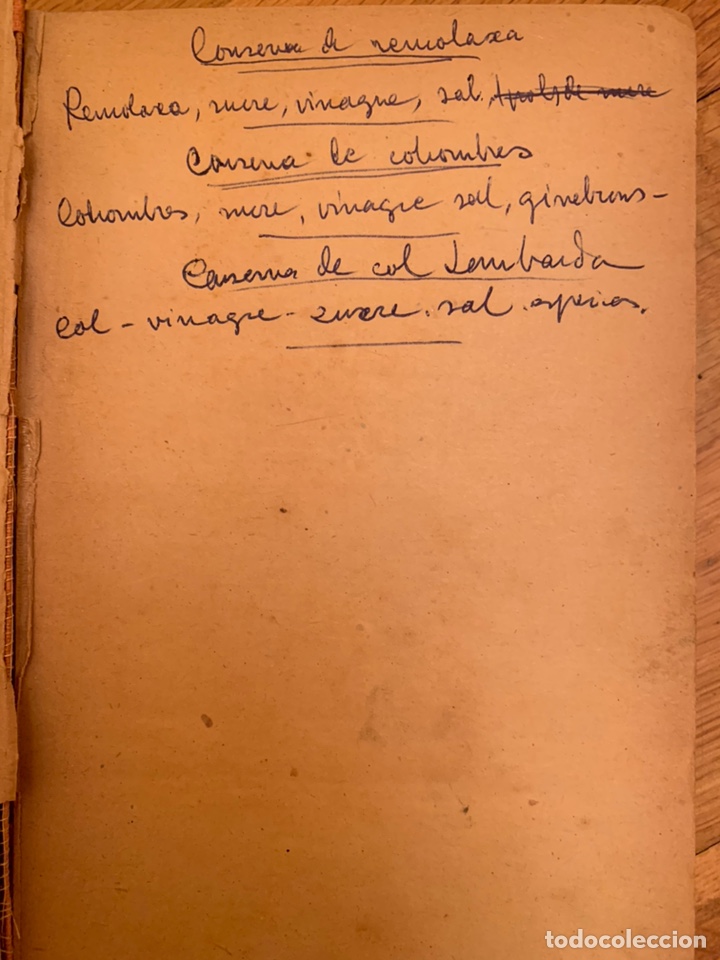 Conserva de remolaxa
Remolaxa, sucre, vinagre, sal.
Conserva de cohombres
Cohombres, sucre, vinagre sal, ginebrons-
Conserva de col Lombarda
Col - vinagre - sucre. sal. especias.
todocoleccion
todocoleccion.net